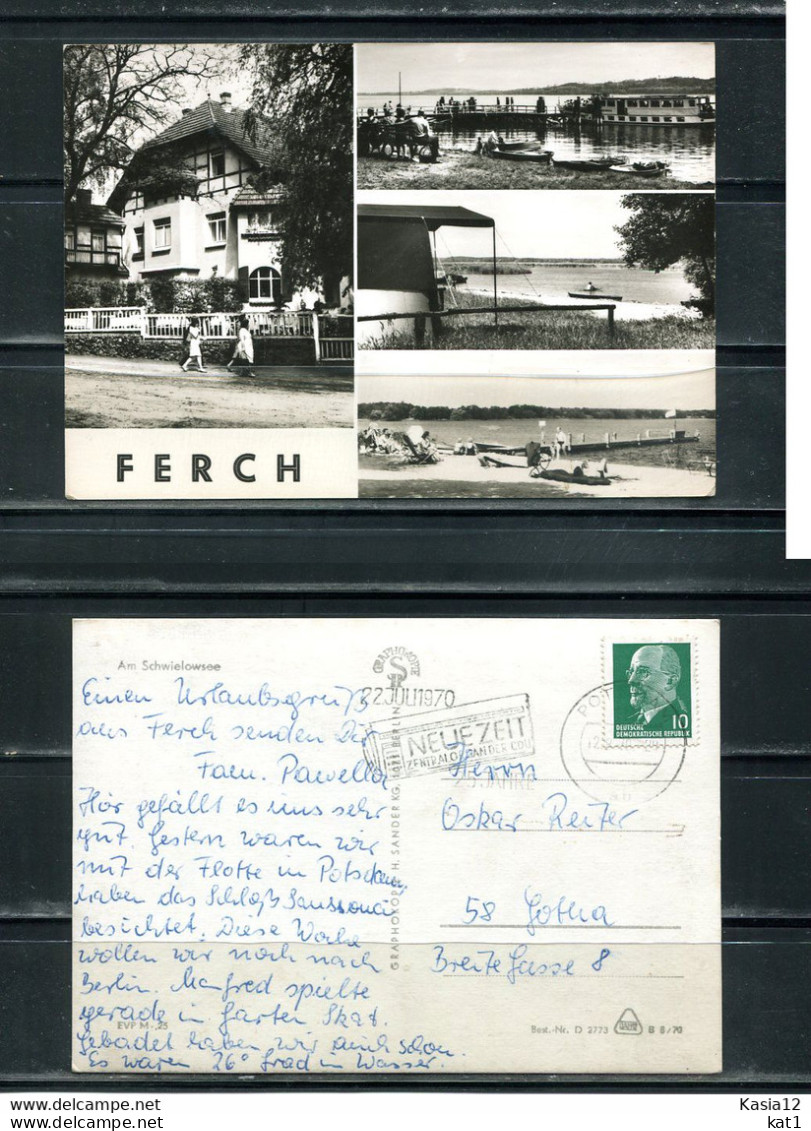 FERCH
Am Schwielowsee
GRAPHOKOPIE
22.JULI1970
NEUE ZEIT
ZENTRALORGAN DER CDU
25 JAHRE
DEUTSCHE
DEMOKRATISCHE REPUBLIK
10
Einen Urlaubsgruß
aus Ferch senden Dir
Fam. Pawella
Hir gefällt es uns sehr
gut. Gestern waren wir
mit der Flotte in Potsdam,
haben das Schloß Sanssouci
besichtet. Diese Woche
wollen wir noch nach
Berlin. Manfred spielte
gerade in Garten Skat.
Gebadet haben wir auch schon.
Es waren 26° Grad in Wasser.
EVP M -,25
GRAPHOKOPIE H. SANDER KG, 1021 BERLIN
Herrn
Oskar Reiter
58 Gotha
Breite Gasse 8
Best.-Nr. D 2773
B 8/70
Kasia12
kat1